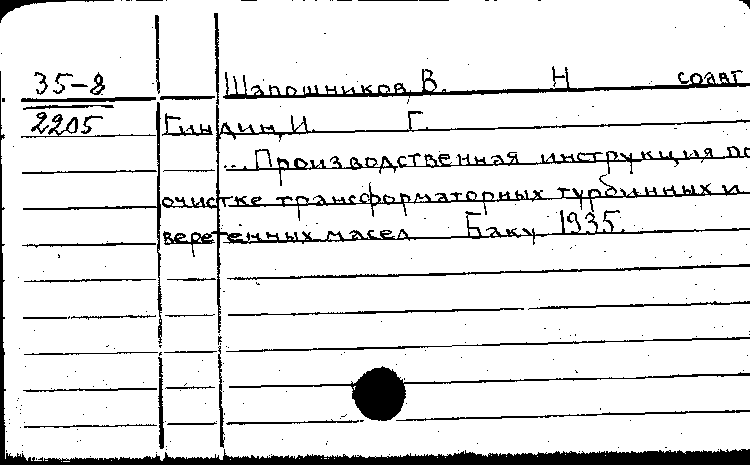 35-8 Шапошников, В. Н соавт
2205 Гиндин, И. Г.
... Производственная инструкция по
очистке трансформаторных турбинных и
веретенных масел Баку 1935.